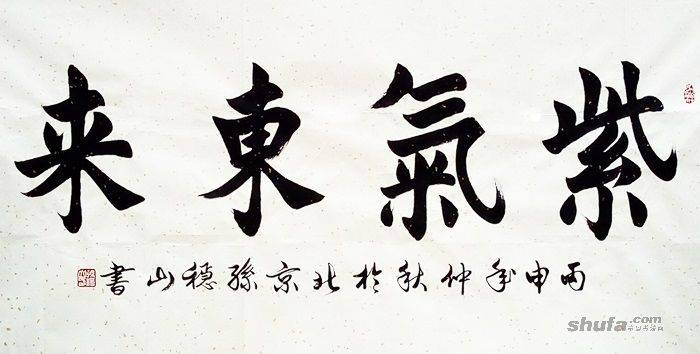 紫氣東来
丙申年仲秋於北京孫穩山書
shufa.com